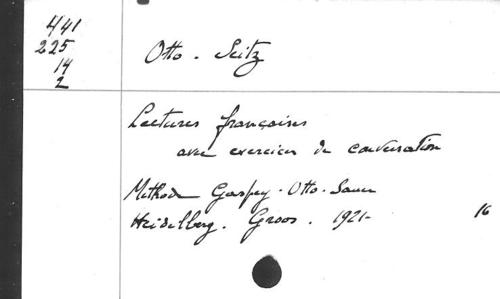 441
225
14
2
Otto. Seitz
Lectures françaises
avec exercices de conversation
Methode Gaspey. Otto. Sauer
Heidelberg. Groos. 1921-
16